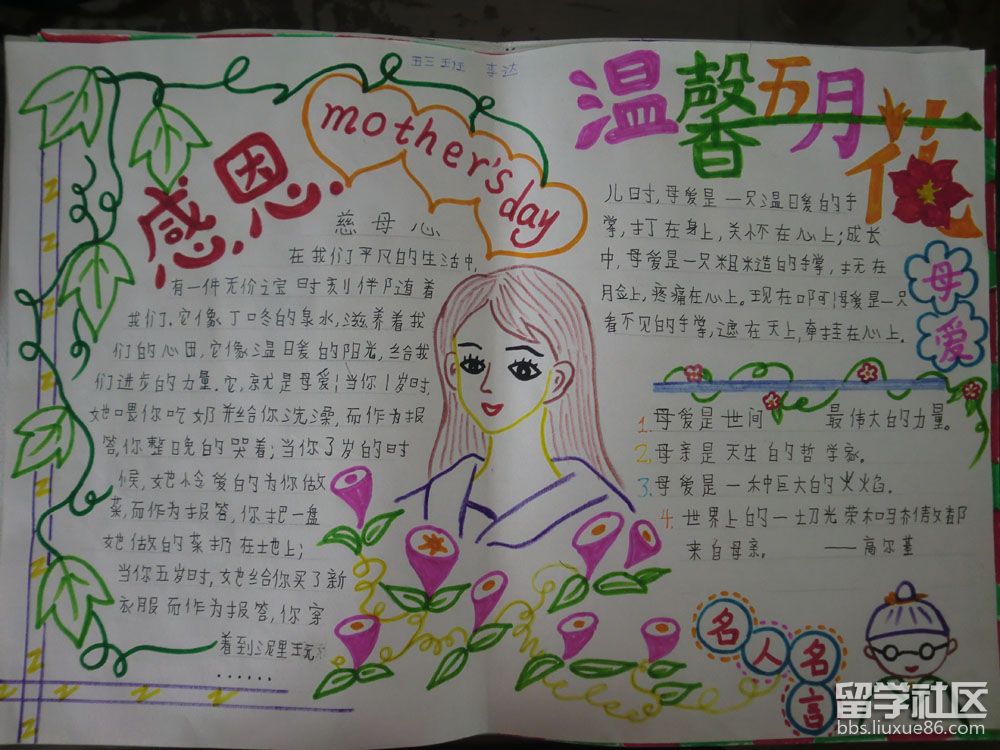 五三班 李达
mother's day
感恩
慈母心
在我们平凡的生活中,
有一件无价之宝时刻伴随着
我们.它像丁咚的泉水,滋养着我
们的心田,它像温暖的阳光,给我
们进步的力量.它,就是母爱!当你1岁时,
她喂你吃奶并给你洗澡,而作为报
答,你整晚的哭着;当你3岁的时
候,她怜爱的为你做
菜,而作为报答,你把一盘
她做的菜扔在地上;
当你五岁时,她给你买了新
衣服而作为报答,你穿
着到泥里玩
......
温馨五月花
儿时,母爱是一只温暖的手
掌,打在身上,关怀在心上;成长
中,母爱是一只粗糙的手掌,抚在
脸上,疼痛在心上。现在啊!母爱是一只
看不见的手掌,遮在天上,牵挂在心上。
母爱
1.母爱是世间 最伟大的力量。
2.母亲是天生的哲学家。
3.母爱是一种巨大的火焰.
4.世界上的一切光荣和骄傲都
来自母亲。 ——高尔基
名人名言
留学社区
bbs.liuxue86.com